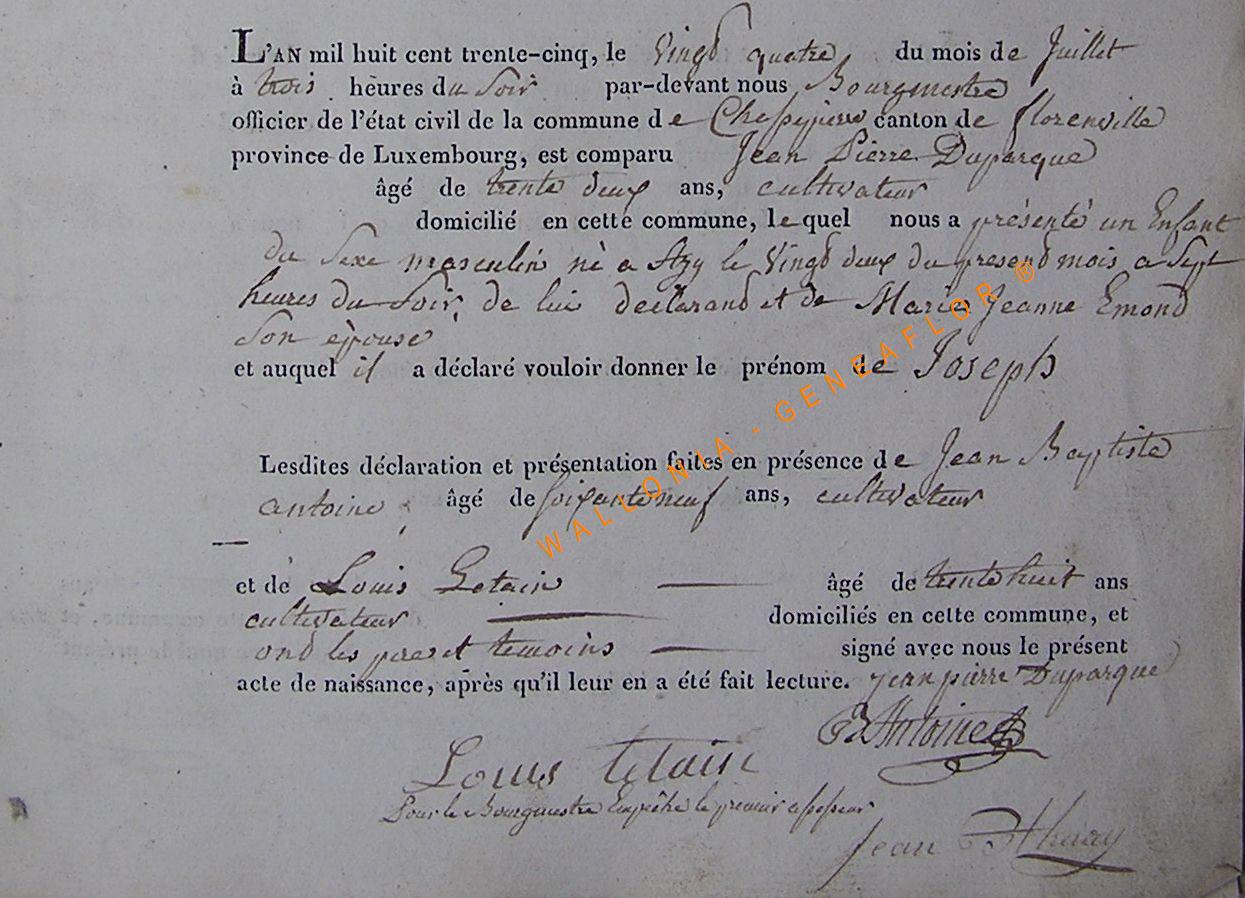 L'AN mil huit cent trente-cinq, le Vingd quatre du mois de Juillet
à trois heures du Soir par-devant nous Bourgmestre
officier de l'état civil de la commune de Chassepierre canton de florenville
province de Luxembourg, est comparu Jean Pierre Duparque
âgé de trente deux ans, cultivateur
domicilié en cette commune, lequel nous a présenté un Enfant
du Sexe masculin né a Azy le Vingd deux du presend mois a Sept
heures du Soir, de lui déclarand et de Marie Jeanne Emond
Son épouse
et auquel il a déclaré vouloir donner le prénom de Joseph
Lesdites déclaration et présentation faites en présence de Jean Baptiste
antoine âgé de soixante neuf ans, cultivateur
et de Louis Getain âgé de trente huit ans
cultivateur domiciliés en cette commune, et
ond les pere et temoins signé avec nous le présent
acte de naissance, après qu'il leur en a été fait lecture. jean pierre Duparque
Antoine
Louis
Pour le Bourgmestre Empêché le premier assesseur
jean
WALLONIA - GENEAFLOR ®